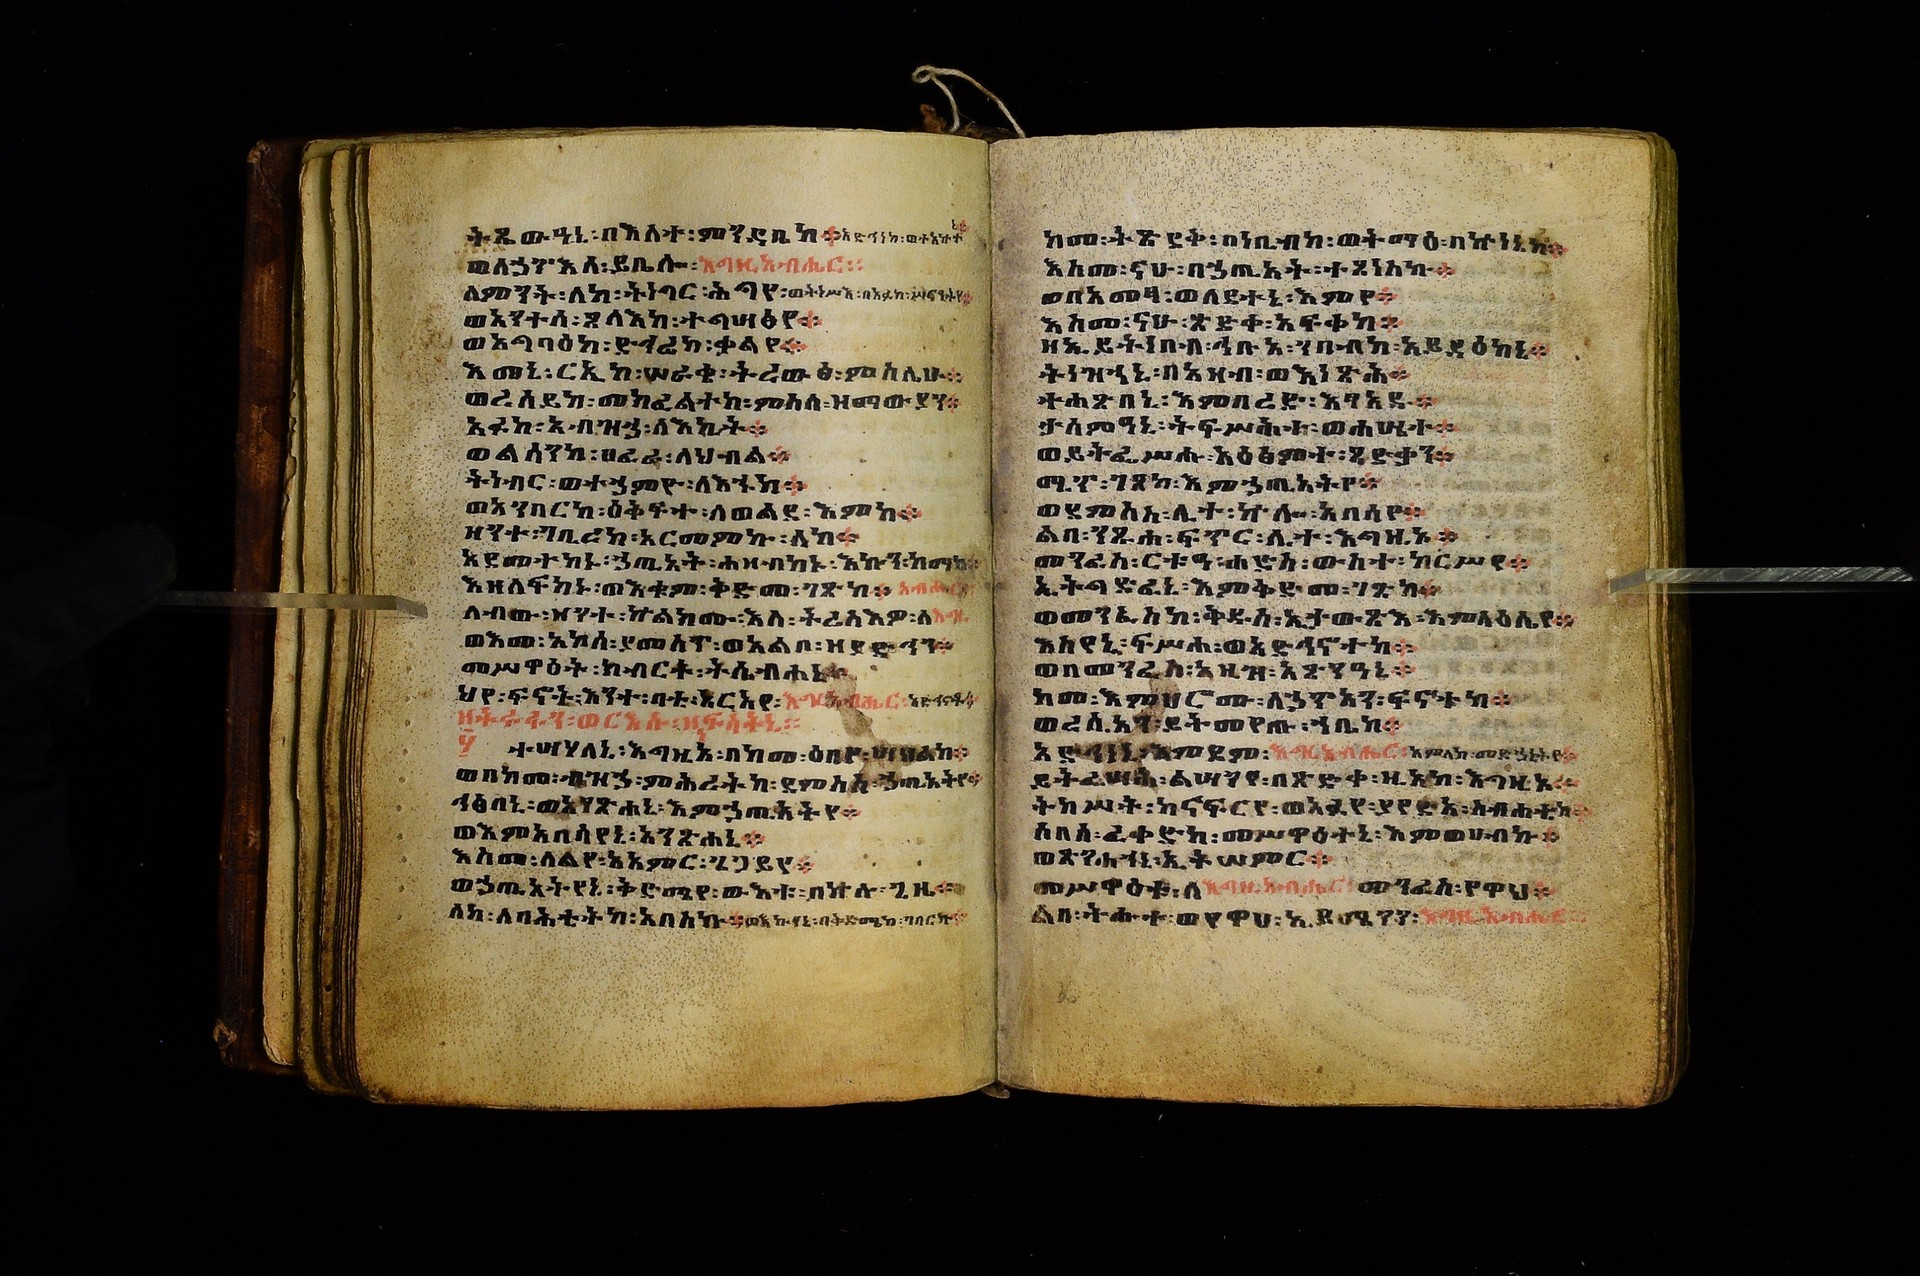 ትጼውዓኒ፡በእለተ፡ምንዳቤከ፨አድኅነከ፡ወታአኵተኒ፨
ወለኃጥእሰ፡ይቤሎ፡እግዚአብሔር፡፡
ለምንት፡ለከ፡ትነግር፡ሕግየ፡ወትነሥእ፡በአፉከ፡ሥርዓትየ፨
ወአንተሰ፡ጸላእከ፡ተግሣፅየ፨
ወአግባዕከ፡ድኅሬከ፡ቃልየ፨
እመኒ፡ርኢከ፡ሠራቂ፡ትረውፅ፡ምስሌሁ፨
ወረሰይከ፡መክፈልተከ፡ምስለ፡ዘማውያን፨
አፉከ፡አብዝኃ፡ለእኪት፨
ወልሳንከ፡ፀፈራ፡ለህብል፨
ትነብር፡ወተኃምዮ፡ለእኁከ፨
ወአንበርከ፡ዕቅፍተ፡ለወልደ፡እምከ፨
ዘንተ፡ገቢረከ፡አርመምኩ፡ለከ፨
አደመተከኑ፡ኃጢአት፡ሐዘብከኑ፡እኩን፡ከማከ፨
እዘለፍከኑ፡ወእቁም፡ቅድመ፡ገጽከ፨
ለብው፡ዘንተ፡ኵልክሙ፡እለ፡ትረስእዎ፡ለእግዚ
ወእመ፡አኮሰ፡ያመስጥ፡ወአልቦ፡ዘያድኅን፨
መሥዋዕት፡ክብርት፡ትሴብሐኒ፨
ህየ፡ፍኖት፡እንተ፡ባቲ፡አርአየ፡እግዚአብሔር፡አድኅኖቶ፨
ዘትፍፃሜ፡ወርእሱ፡ዘይስትኒ፡፡
፶ ተሣሃለኒ፡እግዚኦ፡በከመ፡ዕበየ፡ሣህልከ፨
ወበከመ፡ብዝኃ፡ምሕረትከ፡ደምስስ፡ኃጢአትየ፨
ኅፅበኒ፡ወአንጽሐኒ፡እምኃጢአትየ፨
ወእምአበሳየኒ፡አንጽሐኒ፨
እስመ፡ለልየ፡አአምር፡ጌጋይየ፨
ወኃጢአትየኒ፡ቅድሜየ፡ውእቱ፡በኵሉ፡ጊዜ፨
ለከ፡ለባሕቲትከ፡አበስኩ፨ወእኩየኒ፡በቅድሜከ፡ገበርኩ፨
ከመ፡ትጽደቅ፡በነቢብከ፡ወትማዕ፡በኵነኔከ፨
እስመ፡ናሁ፡በኃጢአት፡ተፀነስኩ፨
ወበአመፃ፡ወለደተኒ፡እምየ፨
እስመ፡ናሁ፡ጽድቀ፡አፍቀርከ፨
ዘኢይትነበብ፡ኅቡአ፡ጥበብከ፡አይዳዕከኒ፨
ትነዝኀኒ፡በአዛብ፡ወእነጽሕ፨
ተሐጽበኒ፡እምበረድ፡እፃአዱ፨
ታሰምዓኒ፡ትፍሥሕተ፡ወሐሤተ፨
ወይትፌሥሑ፡አዕፅምተ፡ጻድቃን፨
ሚጥ፡ገጸከ፡እምኃጢአትየ፨
ወደምስስ፡ሊተ፡ኵሎ፡አበሳየ፨
ልበ፡ንጹሐ፡ፍጥር፡ሊተ፡እግዚኦ፨
መንፈስ፡ርቱዓ፡ሐድስ፡ውስተ፡ከርሥየ፨
ኢትግድፈኒ፡እምቅድመ፡ገጽከ፨
ወመንፈስከ፡ቅዱስ፡ኢታውጽእ፡እምላዕሌየ፨
እስየኒ፡ፍሥሐ፡ወአድኅኖተከ፨
ወበመንፈስ፡አዚዝ፡አጽንዓኒ፨
ከመ፡እምህሮሙ፡ለኃጥአን፡ፍኖተከ፨
ወረሲዓን፡ይትመየጡ፡ኀቤከ፨
አድኅነኒ፡እምደም፡እግዚአብሔር፡አምላከ፡መድኃኒትየ፨
ይትፌሣሕ፡ልሳንየ፡በጽድቀ፡ዚአከ፡እግዚኦ፨
ትከሥት፡ከናፍርየ፡ወአፉየ፡ያየድዕ፡ስብሐቲከ፨
ሰበሰ፡ፈቀድከ፡መሥዋዕተኒ፡እምወሀብኩ፨
ወጽንሐሕኒ፡ኢትሠምር፨
መሥዋዕቱ፡ለእግዚአብሔር፡መንፈስ፡የዋህ፨
ልበ፡ትሑተ፡ወየዋሀ፡ኢይሜንን፡እግዚአብሔር፡፡